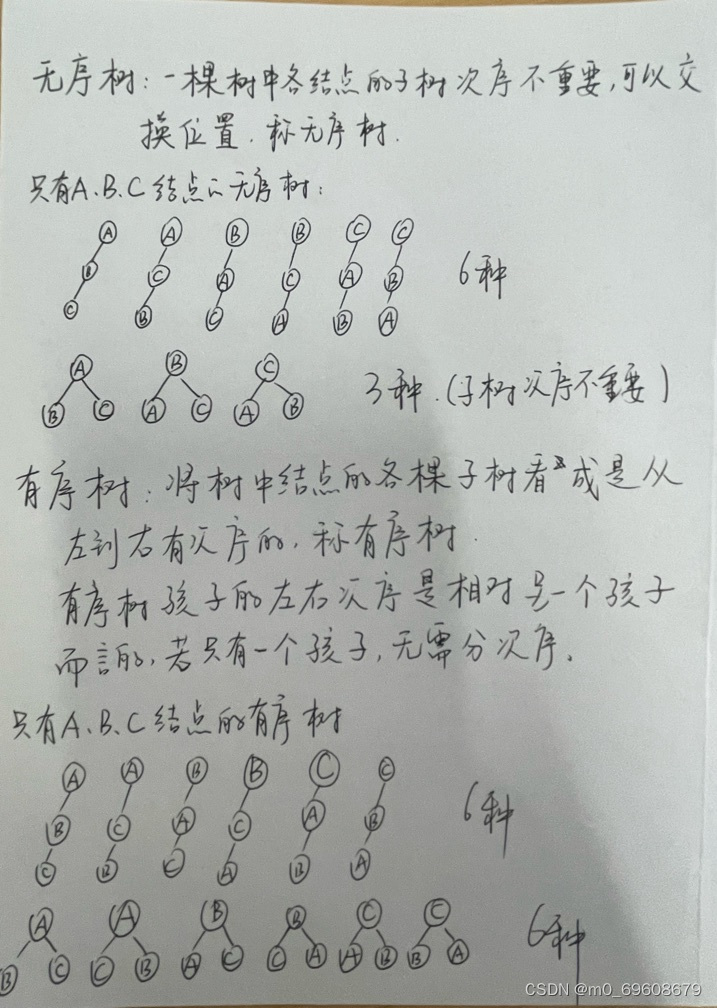 无序树：一棵树中各结点的子树次序不重要,可以交
换位置.称无序树.
只有A.B.C结点的无序树：
A A B B C C
B C A C A B 6种
C B C A B A
A B C
B C A C A B 3种.(子树次序不重要)
有序树：将树中结点的各棵子树看成是从
左到右有次序的,称有序树.
有序树孩子的左右次序是相对另一个孩子
而言的,若只有一个孩子,无需分次序。
只有A、B、C结点的有序树
A A B B C C
B C A C A B 6种
C B C A B A
A A B B C C
B C C B A C C A A B B A 6种
CSDN @m0_69608679